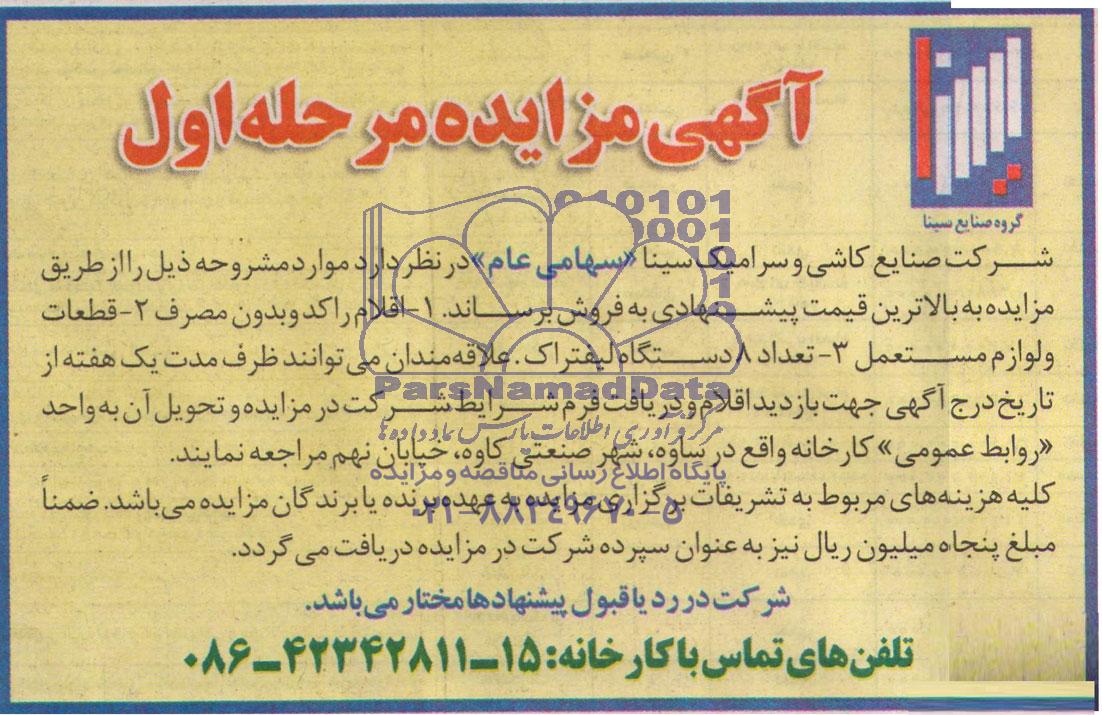 آگهی مزایده مرحله اول
سینا
گروه صنایع سینا
شرکت صنایع کاشی و سرامیک سینا «سهامی عام» در نظر دارد موارد مشروحه ذیل را از طریق
مزایده به بالاترین قیمت پیشنهادی به فروش برساند. ۱-اقلام راکد و بدون مصرف ۲-قطعات
و لوازم مستعمل ۳- تعداد ۸ دستگاه لیفتراک. علاقه‌مندان می‌توانند ظرف مدت یک هفته از
تاریخ درج آگهی جهت بازدید اقلام و دریافت فرم شرایط شرکت در مزایده و تحویل آن به واحد
«روابط عمومی» کارخانه واقع در ساوه، شهر صنعتی کاوه، خیابان نهم مراجعه نمایند.
کلیه هزینه‌های مربوط به تشریفات برگزاری مزایده به عهده برنده یا برندگان مزایده می‌باشد. ضمناً
مبلغ پنجاه میلیون ریال نیز به عنوان سپرده شرکت در مزایده دریافت می گردد.
شرکت در رد یا قبول پیشنهادها مختار می‌باشد.
تلفن های تماس با کارخانه: ۱۵-۴۲۳۴۲۸۱۱-۰۸۶
ParsNamadData
مرکز فرآوری اطلاعات پارس نماد داده‌ها
پایگاه اطلاع رسانی مناقصه و مزایده
۰۲۱-۸۸۳۴۹۶۷۰-۵